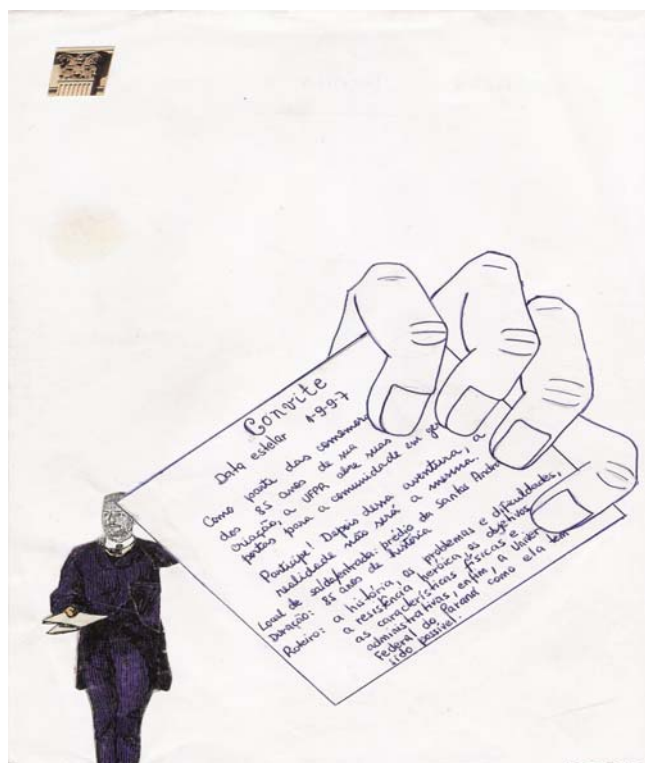 Convite
Data estelar 1-9-9-7
Como parte das comemora
dos 85 anos de sua
criação, a UFPR abre suas
portas para a comunidade em ger
Participe! Depois dessa aventura, a
realidade não será a mesma
Local de saída/entrada: prédio da Santos Andra
Duração: 85 anos de história
Roteiro: a história, os problemas e dificuldades,
a resistência heróica, os objetivos
as características físicas e
administrativas, enfim, a Univer
Federal do Paraná como ela tem
sido possível.